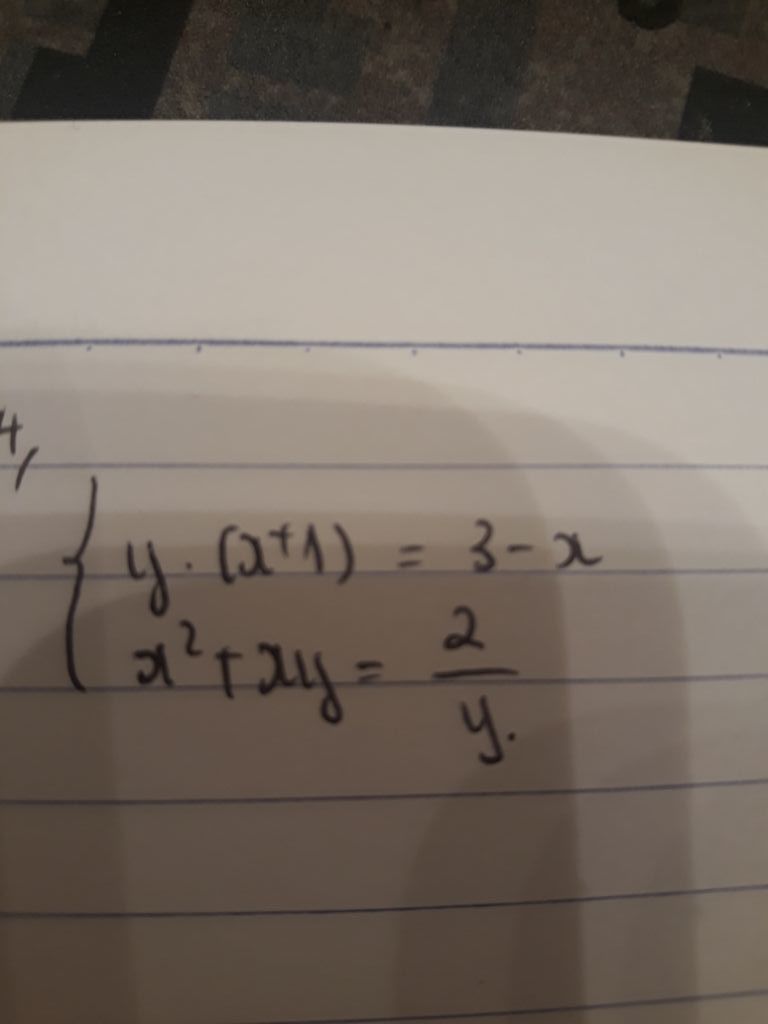 4,
{ y . (x+1) = 3 - x
x² + xy = 2/y.